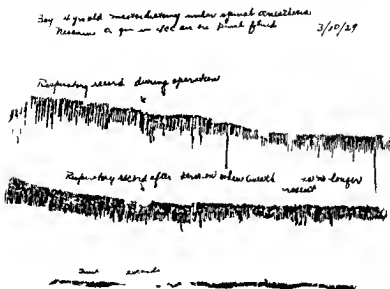 Boy 4 yr old mastoidectomy under spinal anesthesia
in 4cc spinal fluid 3/20/29
Respiratory record during operation
Respiratory record after when no longer
Time seconds